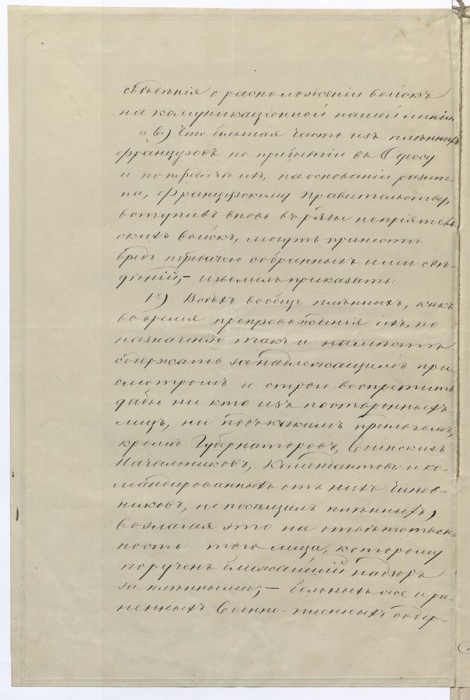 свѣденія о расположеніи войскъ
на комуникаціонной нашей линіи
и в) Что большая часть изъ плѣнныхъ
французовъ по прибытіи въ Одессу
и по передачѣ ихъ, на основаніи размѣ
на, Французскому правительству,
вступивъ вновь въ ряды непріятель
скихъ войскъ, могутъ принести
вредъ передачею собранныхъ ими свѣ
дѣній,- изволилъ приказать
1е) Всѣхъ вообще плѣнныхъ, какъ
во время препровожденія ихъ, по
назначенію такъ и на мѣстѣ
содержать за надлежащимъ при
смотромъ и строго воспретить
дабы ни кто изъ постороннихъ
лицъ, ни подъ какимъ предлогомъ,
кромѣ Губернаторовъ, Воинскихъ
Начальниковъ, Комендантовъ и ко
мандированныхъ отъ нихъ чинов
никовъ, не посѣщалъ плѣнныхъ,
возлагая это на отвѣтствен
ность того лица, которому
порученъ ближайшій надзоръ
за плѣнными,- больныхъ же и ра
ненныхъ Военно-плѣнныхъ содер-